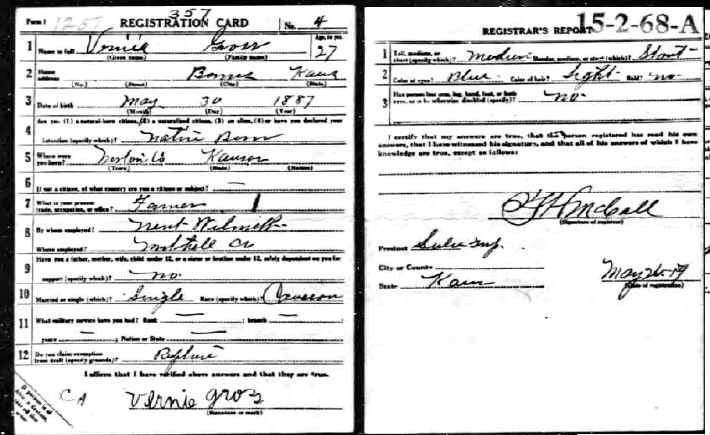 Form 1 1257 REGISTRATION CARD 357 No. 4
1 Name in full Vernie Gross Age, in yrs. 27
(Given name) (Family name)
2 Home address Kans
(No.) (Street) (City) (State)
3 Date of birth May 30 1887
(Month) (Day) (Year)
4 Are you (1) a natural-born citizen, (2) a naturalized citizen, (3) an alien, (4) or have you declared your
intention (specify which)? Native Born
5 Where were you born? Norton Co Kansas
(Town) (State) (Nation)
6 If not a citizen, of what country are you a citizen or subject? —
7 What is your present trade, occupation, or office? Farmer
8 By whom employed?
Where employed? Mitchell Co
9 Have you a father, mother, wife, child under 12, or a sister or brother under 12, solely dependent on you for
support (specify which)? no
10 Married or single (which)? Single Race (specify which)?
11 What military service have you had? Rank — ; branch —
years — ; Nation or State —
12 Do you claim exemption from draft (specify grounds)?
I affirm that I have verified above answers and that they are true.
Vernie Gros
(Signature or mark)
REGISTRAR'S REPORT 15-2-68-A
1 Tall, medium, or short (specify which)? Medium Slender, medium, or stout (which)? Stout
2 Color of eyes? Blue Color of hair? Light Bald? no
3 Has person lost arm, leg, hand, foot, or both
eyes, or is he otherwise disabled (specify)? no
I certify that my answers are true, that the person registered has read his own
answers, that I have witnessed his signature, and that all of his answers of which I have
knowledge are true, except as follows:
McCall
(Signature of registrar)
Precinct
City or County
State Kans
(Date of registration)